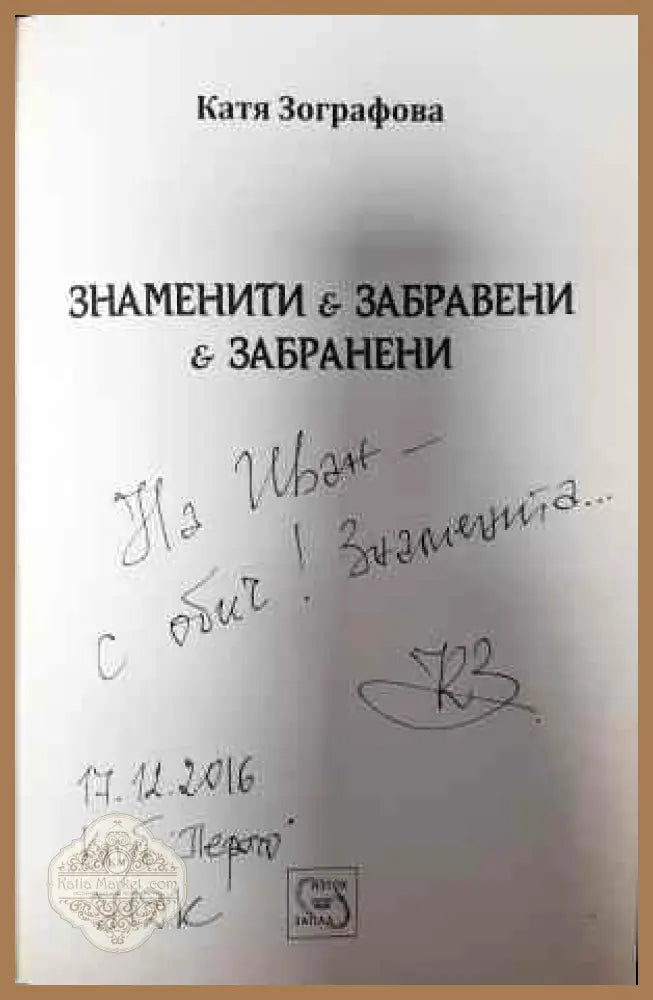 Катя Зографова
ЗНАМЕНИТИ & ЗАБРАВЕНИ
& ЗАБРАНЕНИ
На Иван –
с обич! Знаменита...
КЗ
17.12.2016
"Перото"
KM
KatiaMarket.com
НДК
ИЗТОК
ЗАПАД